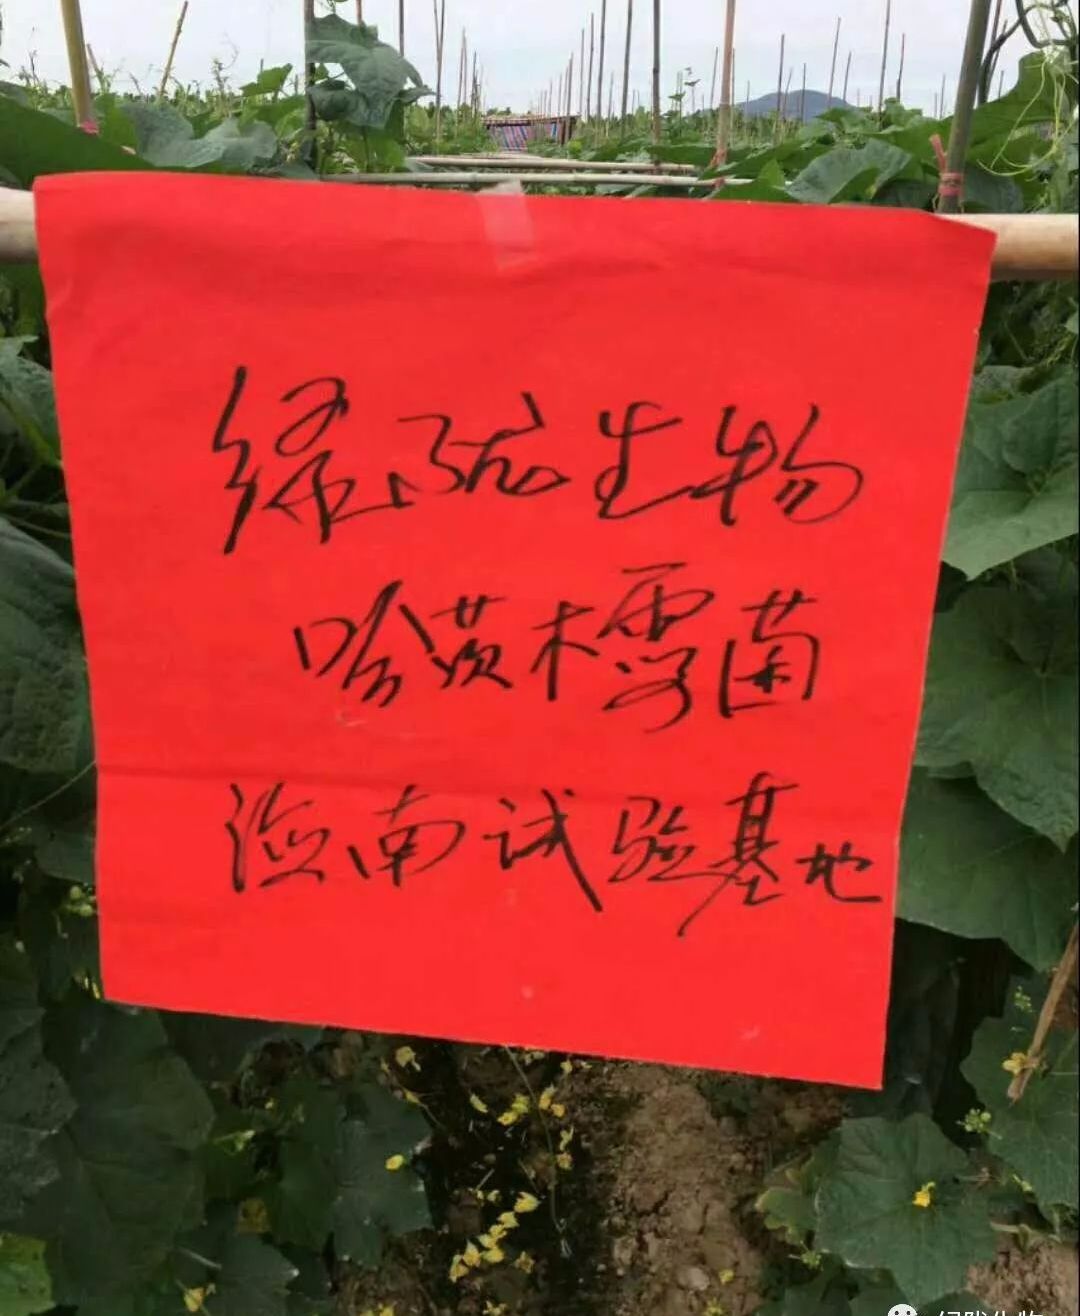 绿陇生物
哈茨木霉菌
南试验基地
绿陇生物